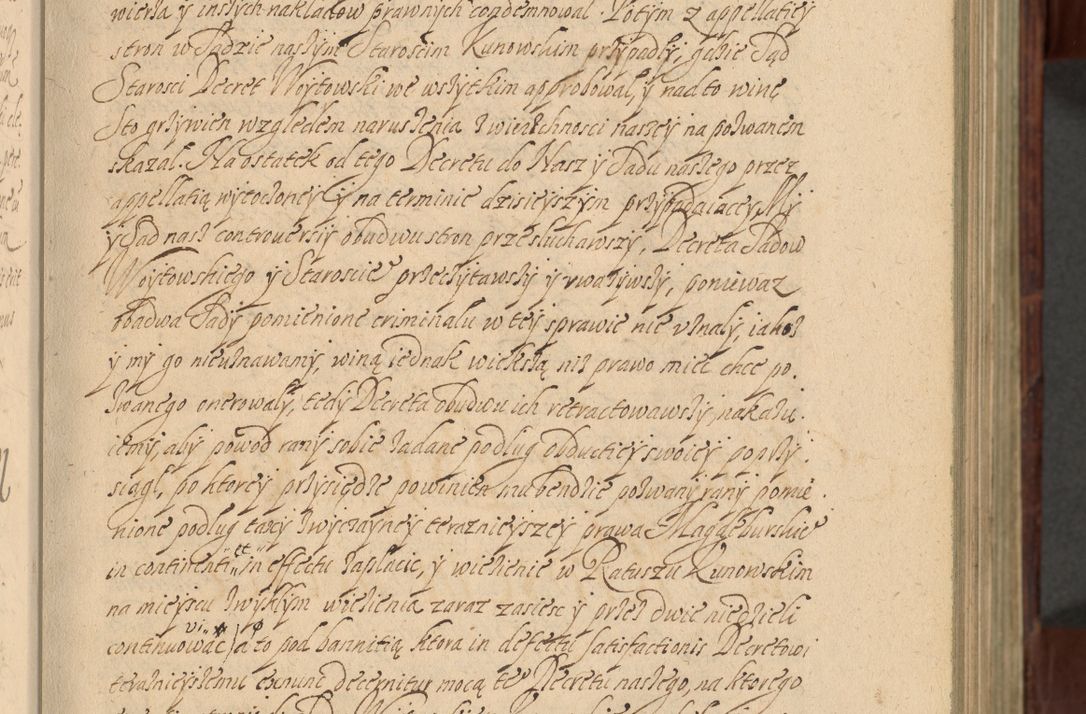 wieża y inszych nakładow prawnych condemnował. Potym z appellatiey
stron w Sądzie naszym Starościm Kunowskim przypadły, gdzie Sąd
Starosci Decret Woytowski we wszytkim approbował, y nad to winę
Sto grzywien względem naruszenia zwierzchnosci naszey na pozwanem
skazał. Na ostatek od tego Decretu do Nasz y Sądu naszego przez
appellatią wytoczoney y na terminie dzisieyszym przypadaiącey, My
y Sąd nasz controversiy obudwu stron przesłuchawszy, Decreta Sądow
Woytowskiego y Staroscie° przeczytawszy y vważywszy, ponieważ
obadwa Sądy pomienione criminału w tey sprawie nie vznały, iakoż
y my go nieuznawamy, winą iednak większą niż prawo mieć chce po.
zwanego onerowały, tedy Decreta obudwu ich retractowawszy, nakazu.
iemy, aby powod rany sobie zadane podług obductiey swoiey poprzy.
siągł, po ktorey przysiędze powinien mu bendzie pozwany rany pomie.
nione podług taxy zwyczayney teraznieyszey prawa Magdeburskie°
in continenti „et„ in effectu zapłacić, y wiezienie w Ratuszu Kunowskim
na mieyscu zwykłym więzienia zaraz zasieść y przez dwie niedzieli
continuować, a to pod bannitią ktora in defectu satisfactionis Decretowi
terazniejszemu exnunc decernitur mocą te° Decretu naszego, na ktorego